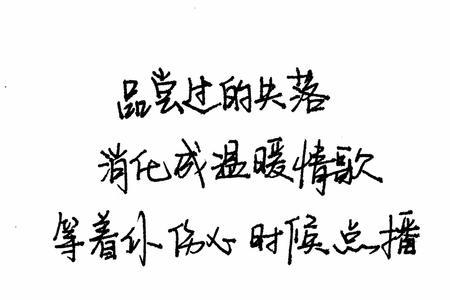 品尝过的失落
消化成温暖情歌
等着你伤心时候点播